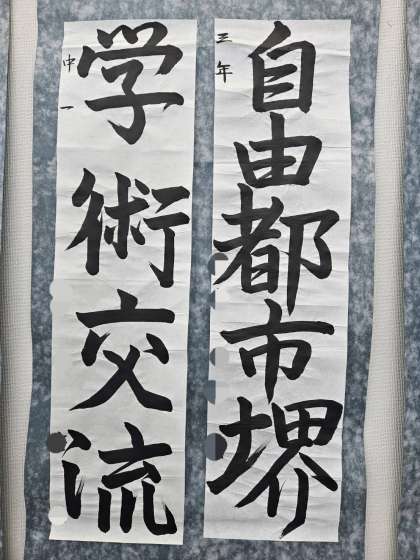 自由都市堺
三年
学術交流
中一